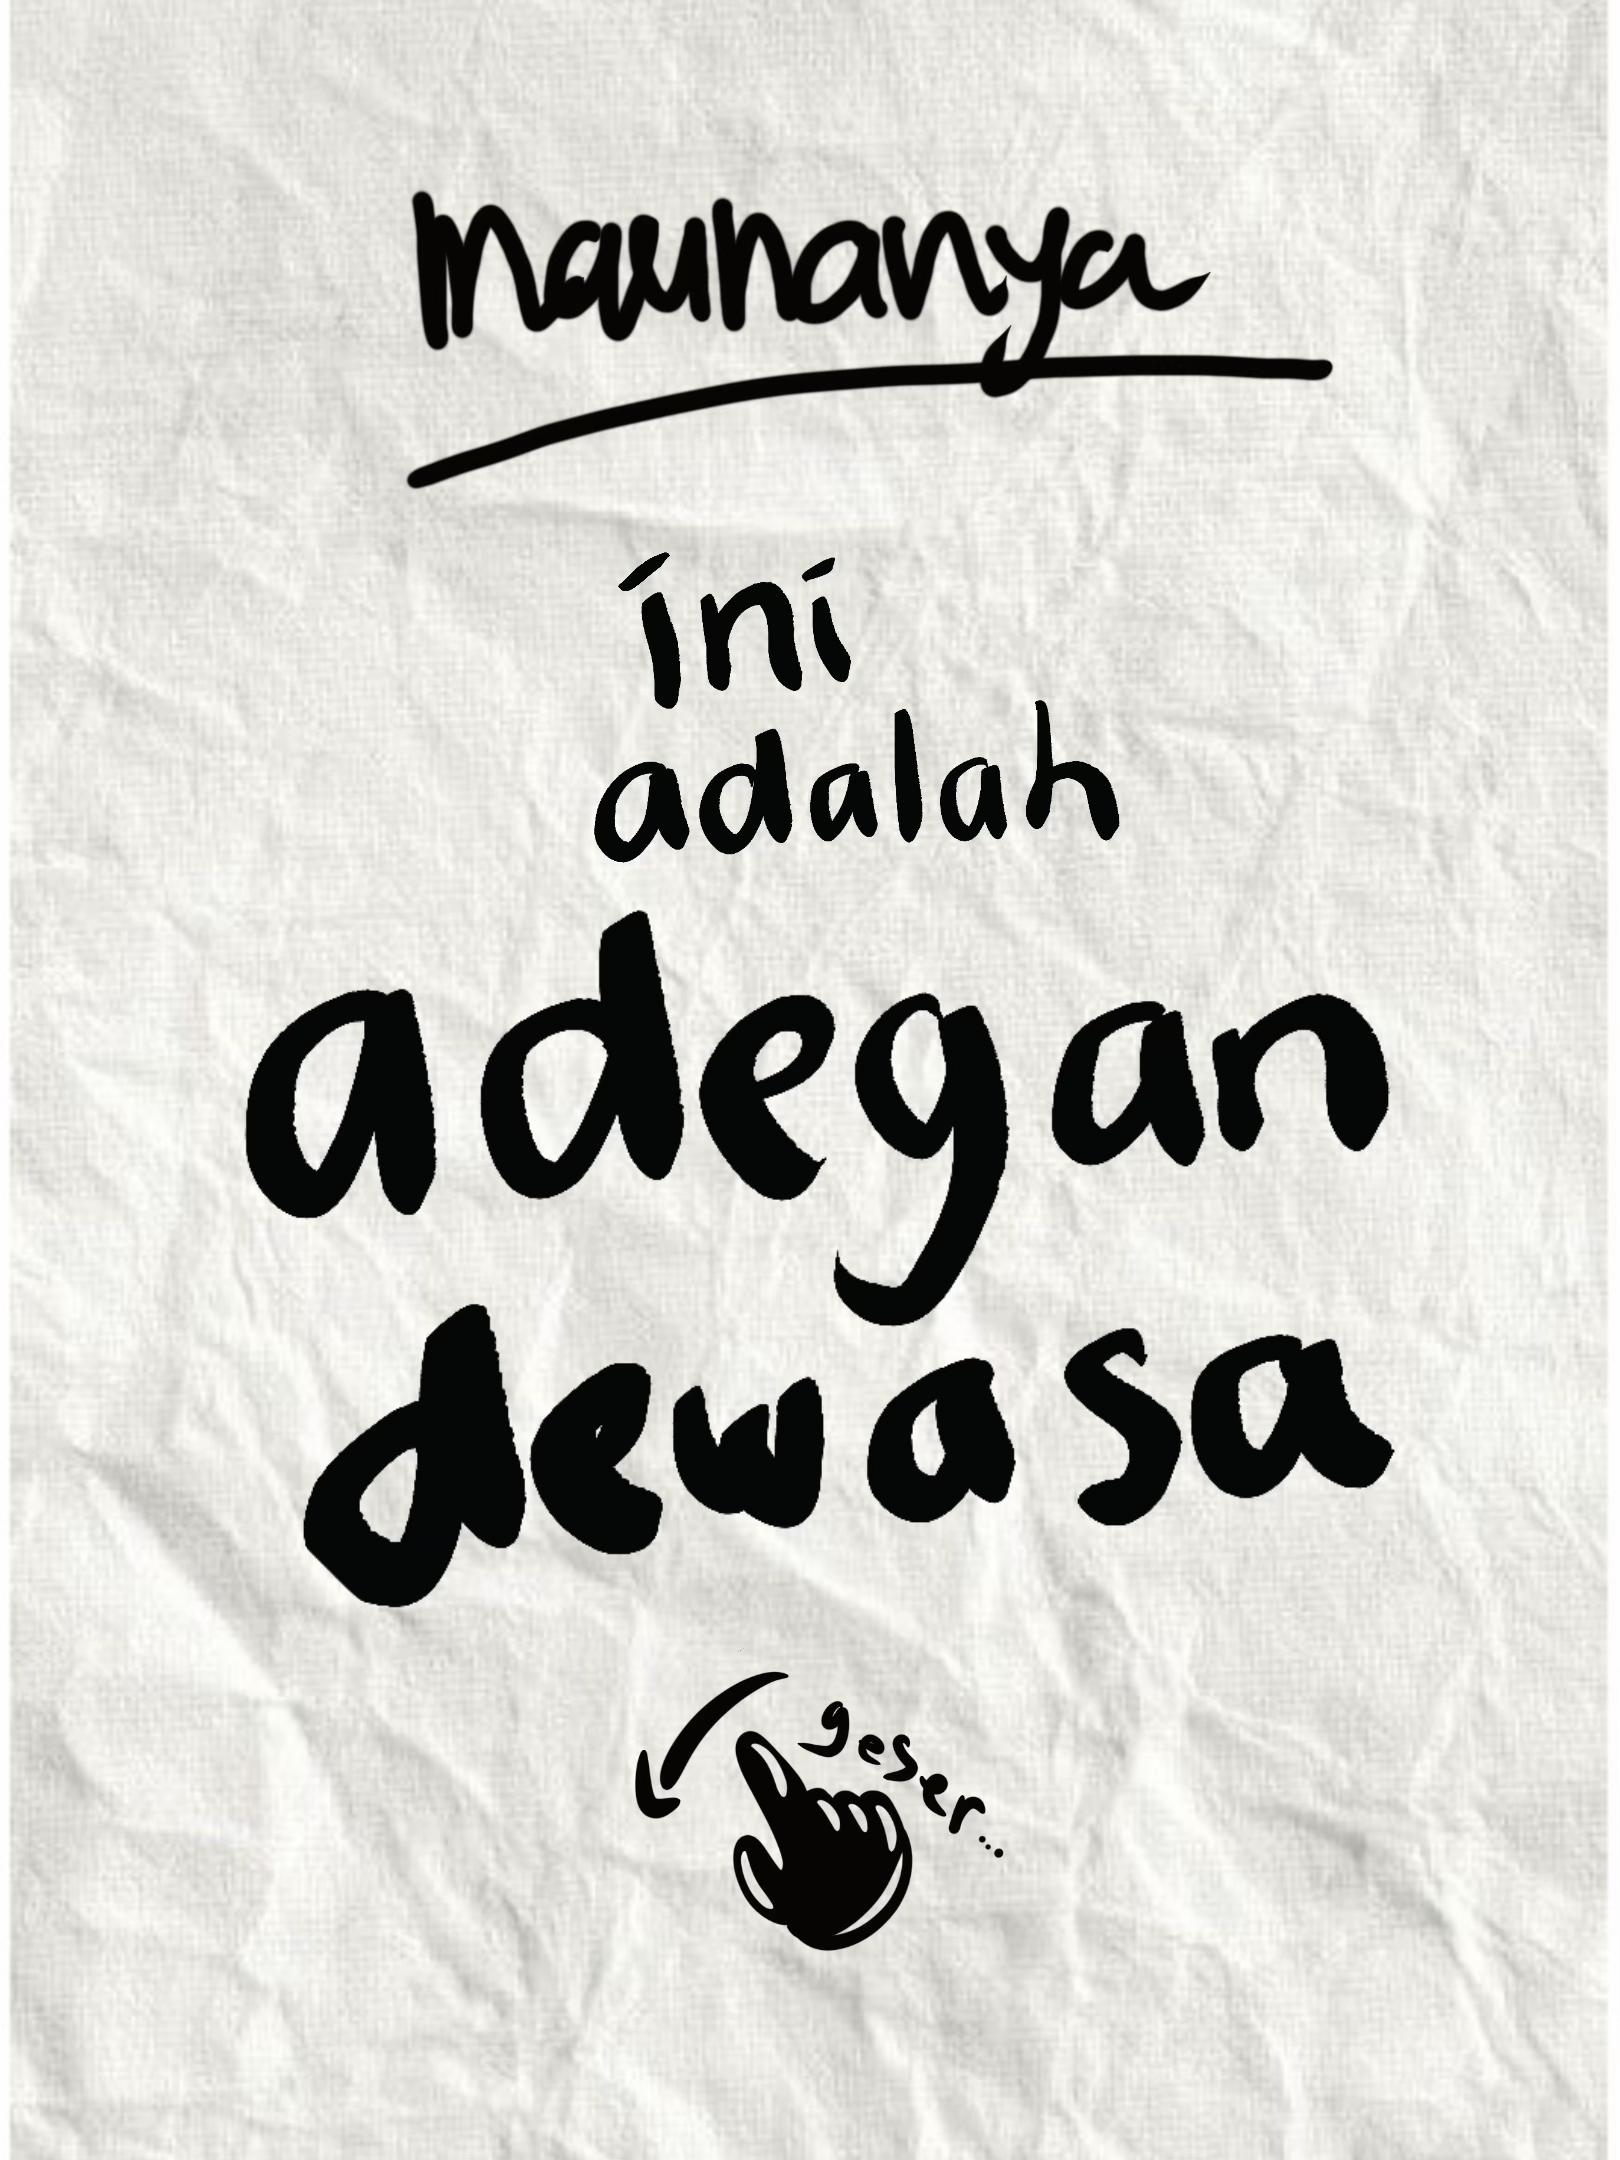 maunanya
ini
adalah
adegan
dewasa
geser...